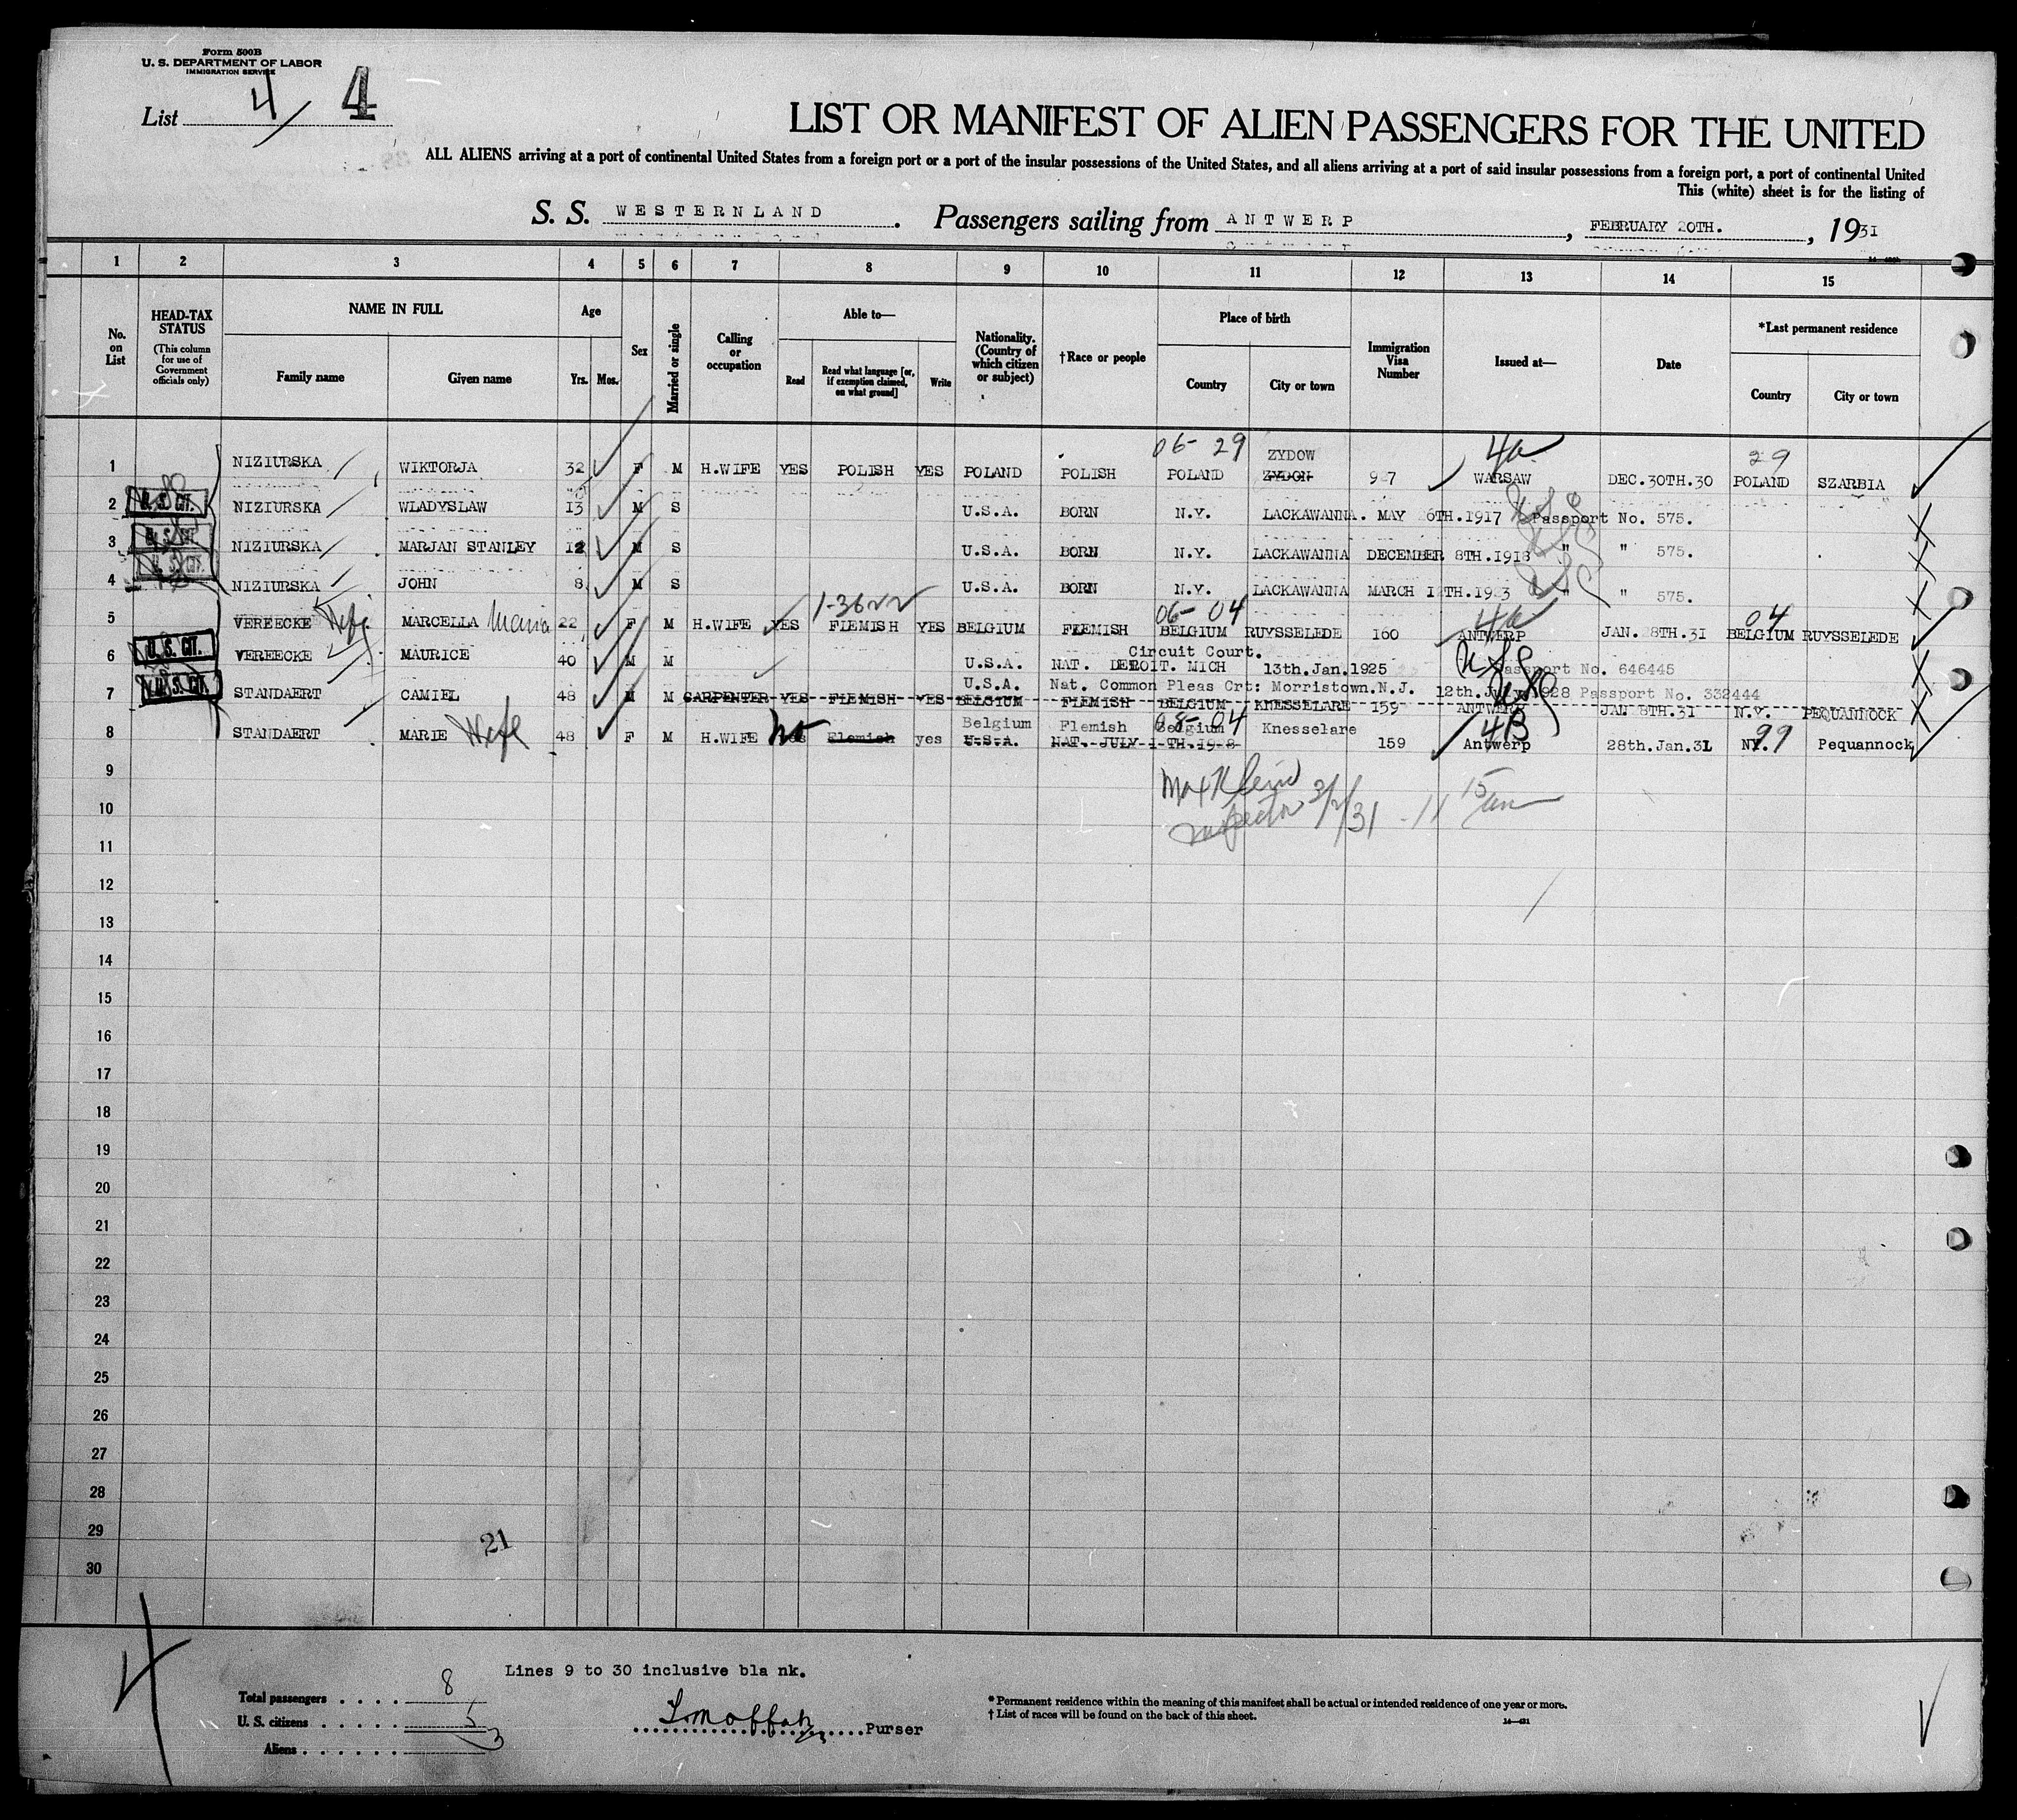 Form 500B
U. S. DEPARTMENT OF LABOR
IMMIGRATION SERVICE
List 4 4
LIST OR MANIFEST OF ALIEN PASSENGERS FOR THE UNITED
ALL ALIENS arriving at a port of continental United States from a foreign port or a port of the insular possessions of the United States, and all aliens arriving at a port of said insular possessions from a foreign port, a port of continental United
This (white) sheet is for the listing of
S. S. WESTERNLAND. Passengers sailing from ANTWERP, FEBRUARY 20TH., 1931
1 2 3 4 5 6 7 8 9 10 11 12 13 14 15
No. on List
HEAD-TAX STATUS (This column for use of Government officials only)
NAME IN FULL Family name Given name
Age Yrs. Mos.
Sex
Married or single
Calling or occupation
Able to— Read Read what language [or, if exemption claimed, on what ground] Write
Nationality. (Country of which citizen or subject)
†Race or people
Place of birth Country City or town
Immigration Visa Number
Issued at—
Date
*Last permanent residence Country City or town
06- 29 ZYDOW 4a 29
1 NIZIURSKA WIKTORJA 32 F M H.WIFE YES POLISH YES POLAND POLISH POLAND ZYDON 9 7 WARSAW DEC.30TH.30 POLAND SZARBIA
2 U.S. CIT. NIZIURSKA WLADYSLAW 13 M S U.S.A. BORN N.Y. LACKAWANNA. MAY 6TH.1917 Passport No. 575.
3 U.S. CIT. NIZIURSKA MARJAN STANLEY 12 M S U.S.A. BORN N.Y. LACKAWANNA DECEMBER 8TH.1918 " " 575.
4 U.S. CIT. NIZIURSKA JOHN 8 M S U.S.A. BORN N.Y. LACKAWANNA MARCH 1 TH.19 3 " " 575.
06- 04 4a 04
5 VEREECKE Wife MARCELLA Maria 22 F M H.WIFE YES FLEMISH YES BELGIUM FLEMISH BELGIUM RUYSSELEDE 160 ANTWERP JAN. 8TH.31 BELGIUM RUYSSELEDE
Circuit Court.
6 U.S. CIT. VEREECKE MAURICE 40 M M U.S.A. NAT. DETROIT. MICH 13th.Jan.1925 Passport No. 646445
U.S.A. Nat. Common Pleas Crt: Morristown.N.J. 12th.July.1928 Passport No. 332444
7 U.S. CIT. STANDAERT CAMIEL 48 M M CARPENTER YES FLEMISH YES BELGIUM FLEMISH BELGIUM KNESSELARE 159 ANTWERP JAN 8TH.31 N.Y. PEQUANNOCK
Belgium Flemish Belgium 04 Knesselare 4B 99
8 STANDAERT MARIE Wife 48 F M H.WIFE no yes Flemish yes U.S.A. NAT. JULY 1 TH.19 8 159 Antwerp 28th.Jan.31 NY. Pequannock
9
10 Inspector 3/2/31 - 11 15 am
11
12
13
14
15
16
17
18
19
20
21
22
23
24
25
26
27
28
29
30
21
4
Lines 9 to 30 inclusive bla nk.
Total passengers . . . . 8
U. S. citizens . . . . . 5
Aliens . . . . . . 3
Purser
* Permanent residence within the meaning of this manifest shall be actual or intended residence of one year or more.
† List of races will be found on the back of this sheet.